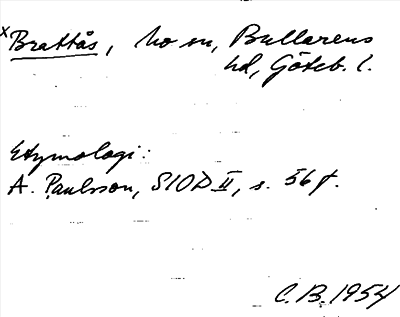 x Brattås, Mo sn, Bullarens
hd, Göteb. l.
Etymologi:
A. Paulsson, SIOD II, s. 56 f.
C.B. 1954